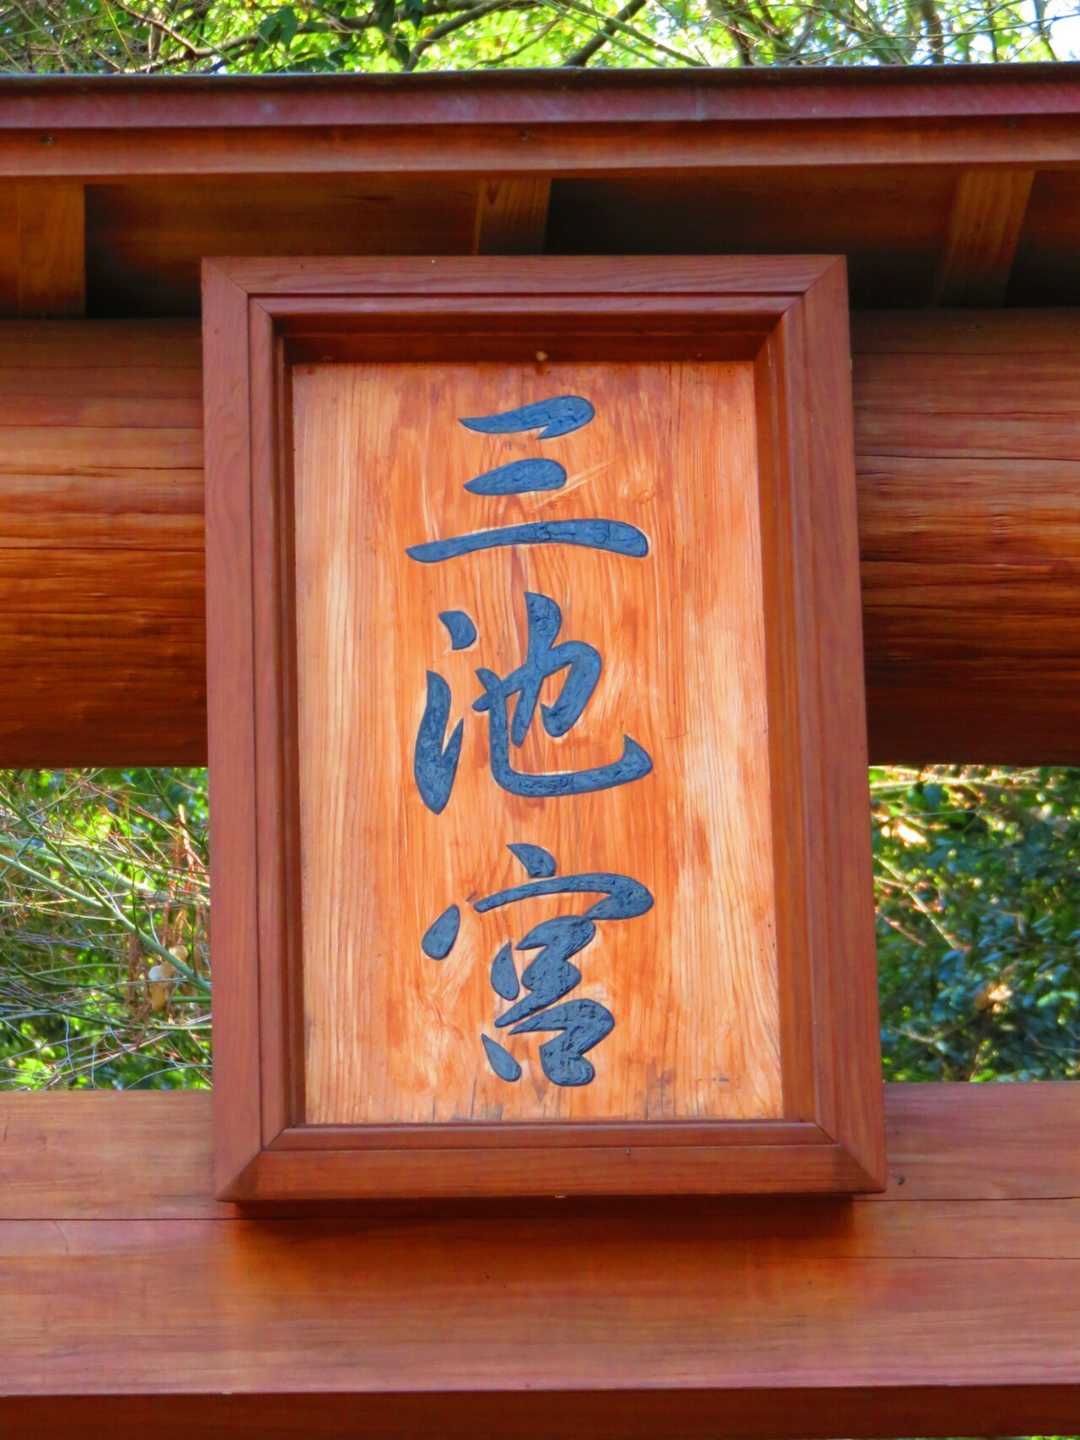 三池宮